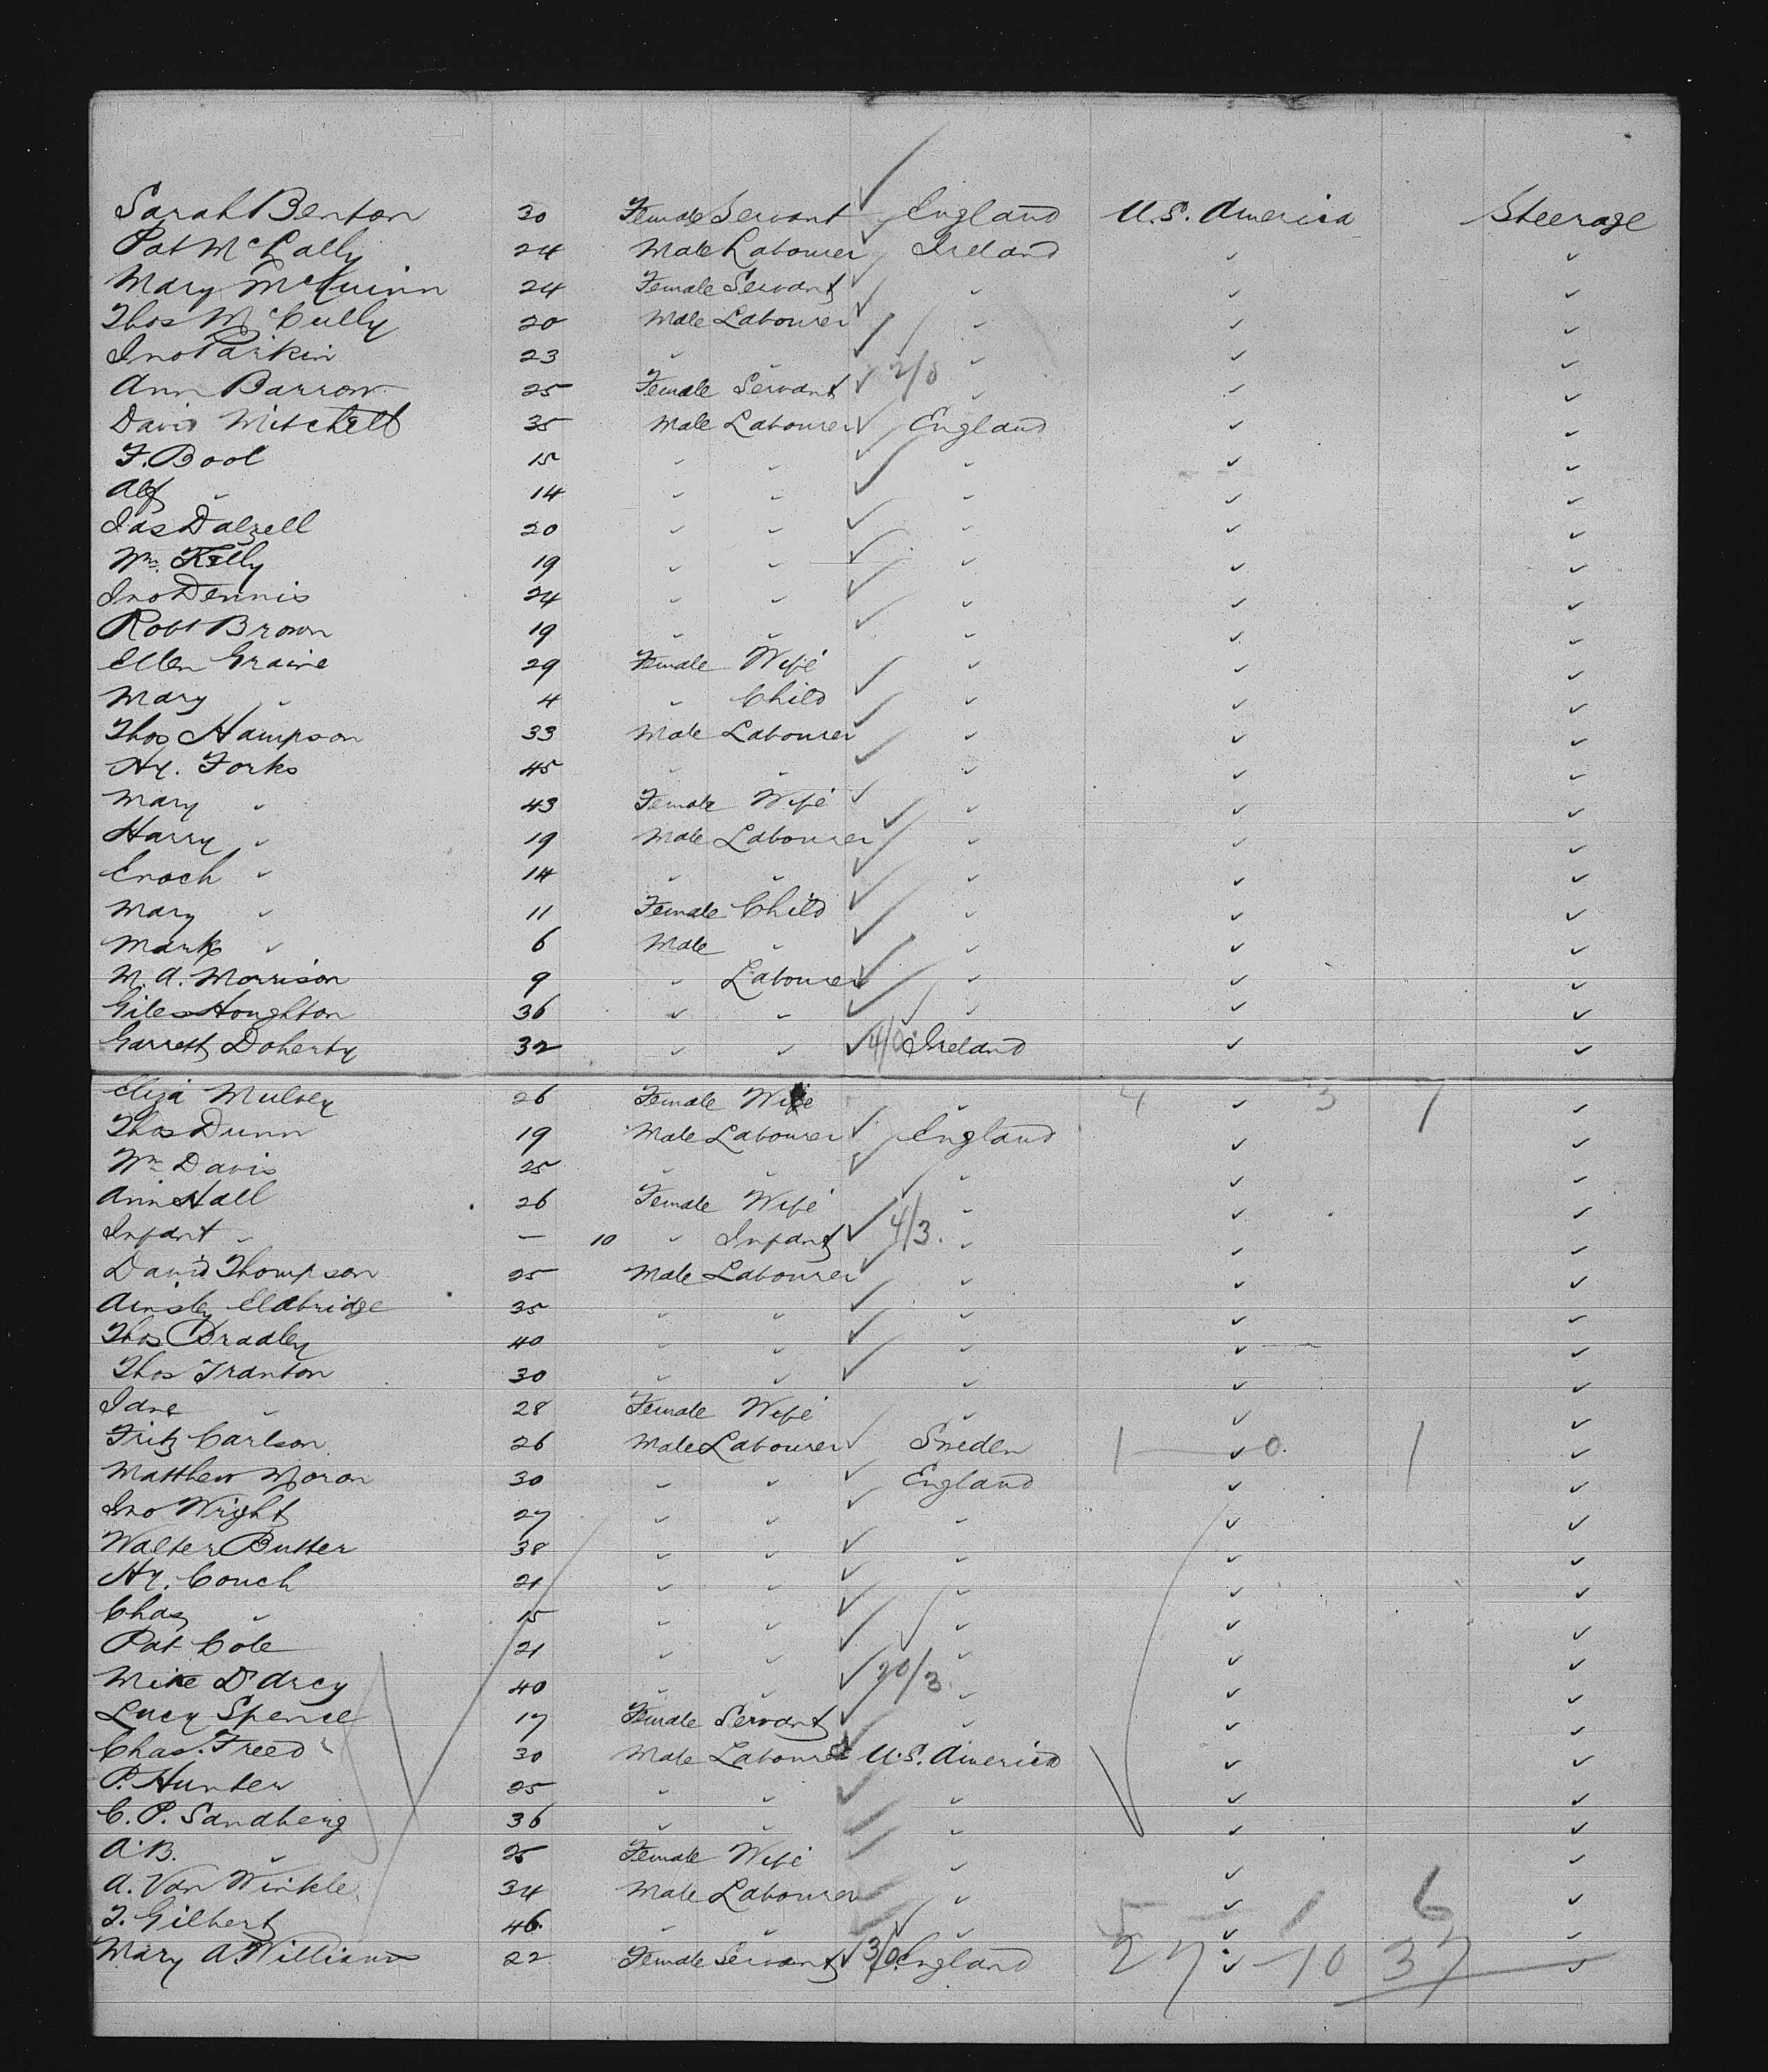 Sarah Benton 30 Female Servant England U.S. America Steerage
Pat McLally 24 Male Labourer Ireland
Mary McQuinn 24 Female Servant
Thos McCully 20 Male Labourer
Jno Parkin 23
Ann Barrow 25 Female Servant
David Mitchell 35 Male Labourer England
F. Bool 15
Alf 14
Jas Dalzell 20
Wm. Kelly 19
Jno Dennis 24
Robt Brown 19
Ellen Graine 29 Female Wife
Mary 4 Child
Thos Hampson 33 Male Labourer
Hy. Forks 45
Mary 43 Female Wife
Harry 19 Male Labourer
Enoch 14
Mary 11 Female Child
Mark 6 Male
M. A. Morrison 9 Labourer
Giles Houghton 36
Garrett Doherty 32 4/0 Ireland
Eliza Mulvey 26 Female Wife 4 3 7
Thos Dunn 19 Male Labourer England
Wm Davis 25
Ann Hall 26 Female Wife
Infant — 10 Infant 4/3.
David Thompson 25 Male Labourer
Ainsley Eldbridge 35
Thos Bradley 40
Thos Tranton 30
Jane 28 Female Wife
Fritz Carlson 26 Male Labourer Sweden 1 0 1
Matthew Moran 30 England
Jno Wright 27
Walter Butter 38
Hy. Couch 21
Chas 15
Pat Cole 21
Mike D'Arcy 40 20/3
Lucy Spence 17 Female Servant
Chas. Freed 30 Male Labourer U.S. America
P. Hunter 25
C. P. Sandberg 36
A. B. 25 Female Wife
A. Van Winkle 34 Male Labourer
T. Gilbert 46 5 — 1 6
Mary A. Williams 22 Female Servant England 27 — 10 37